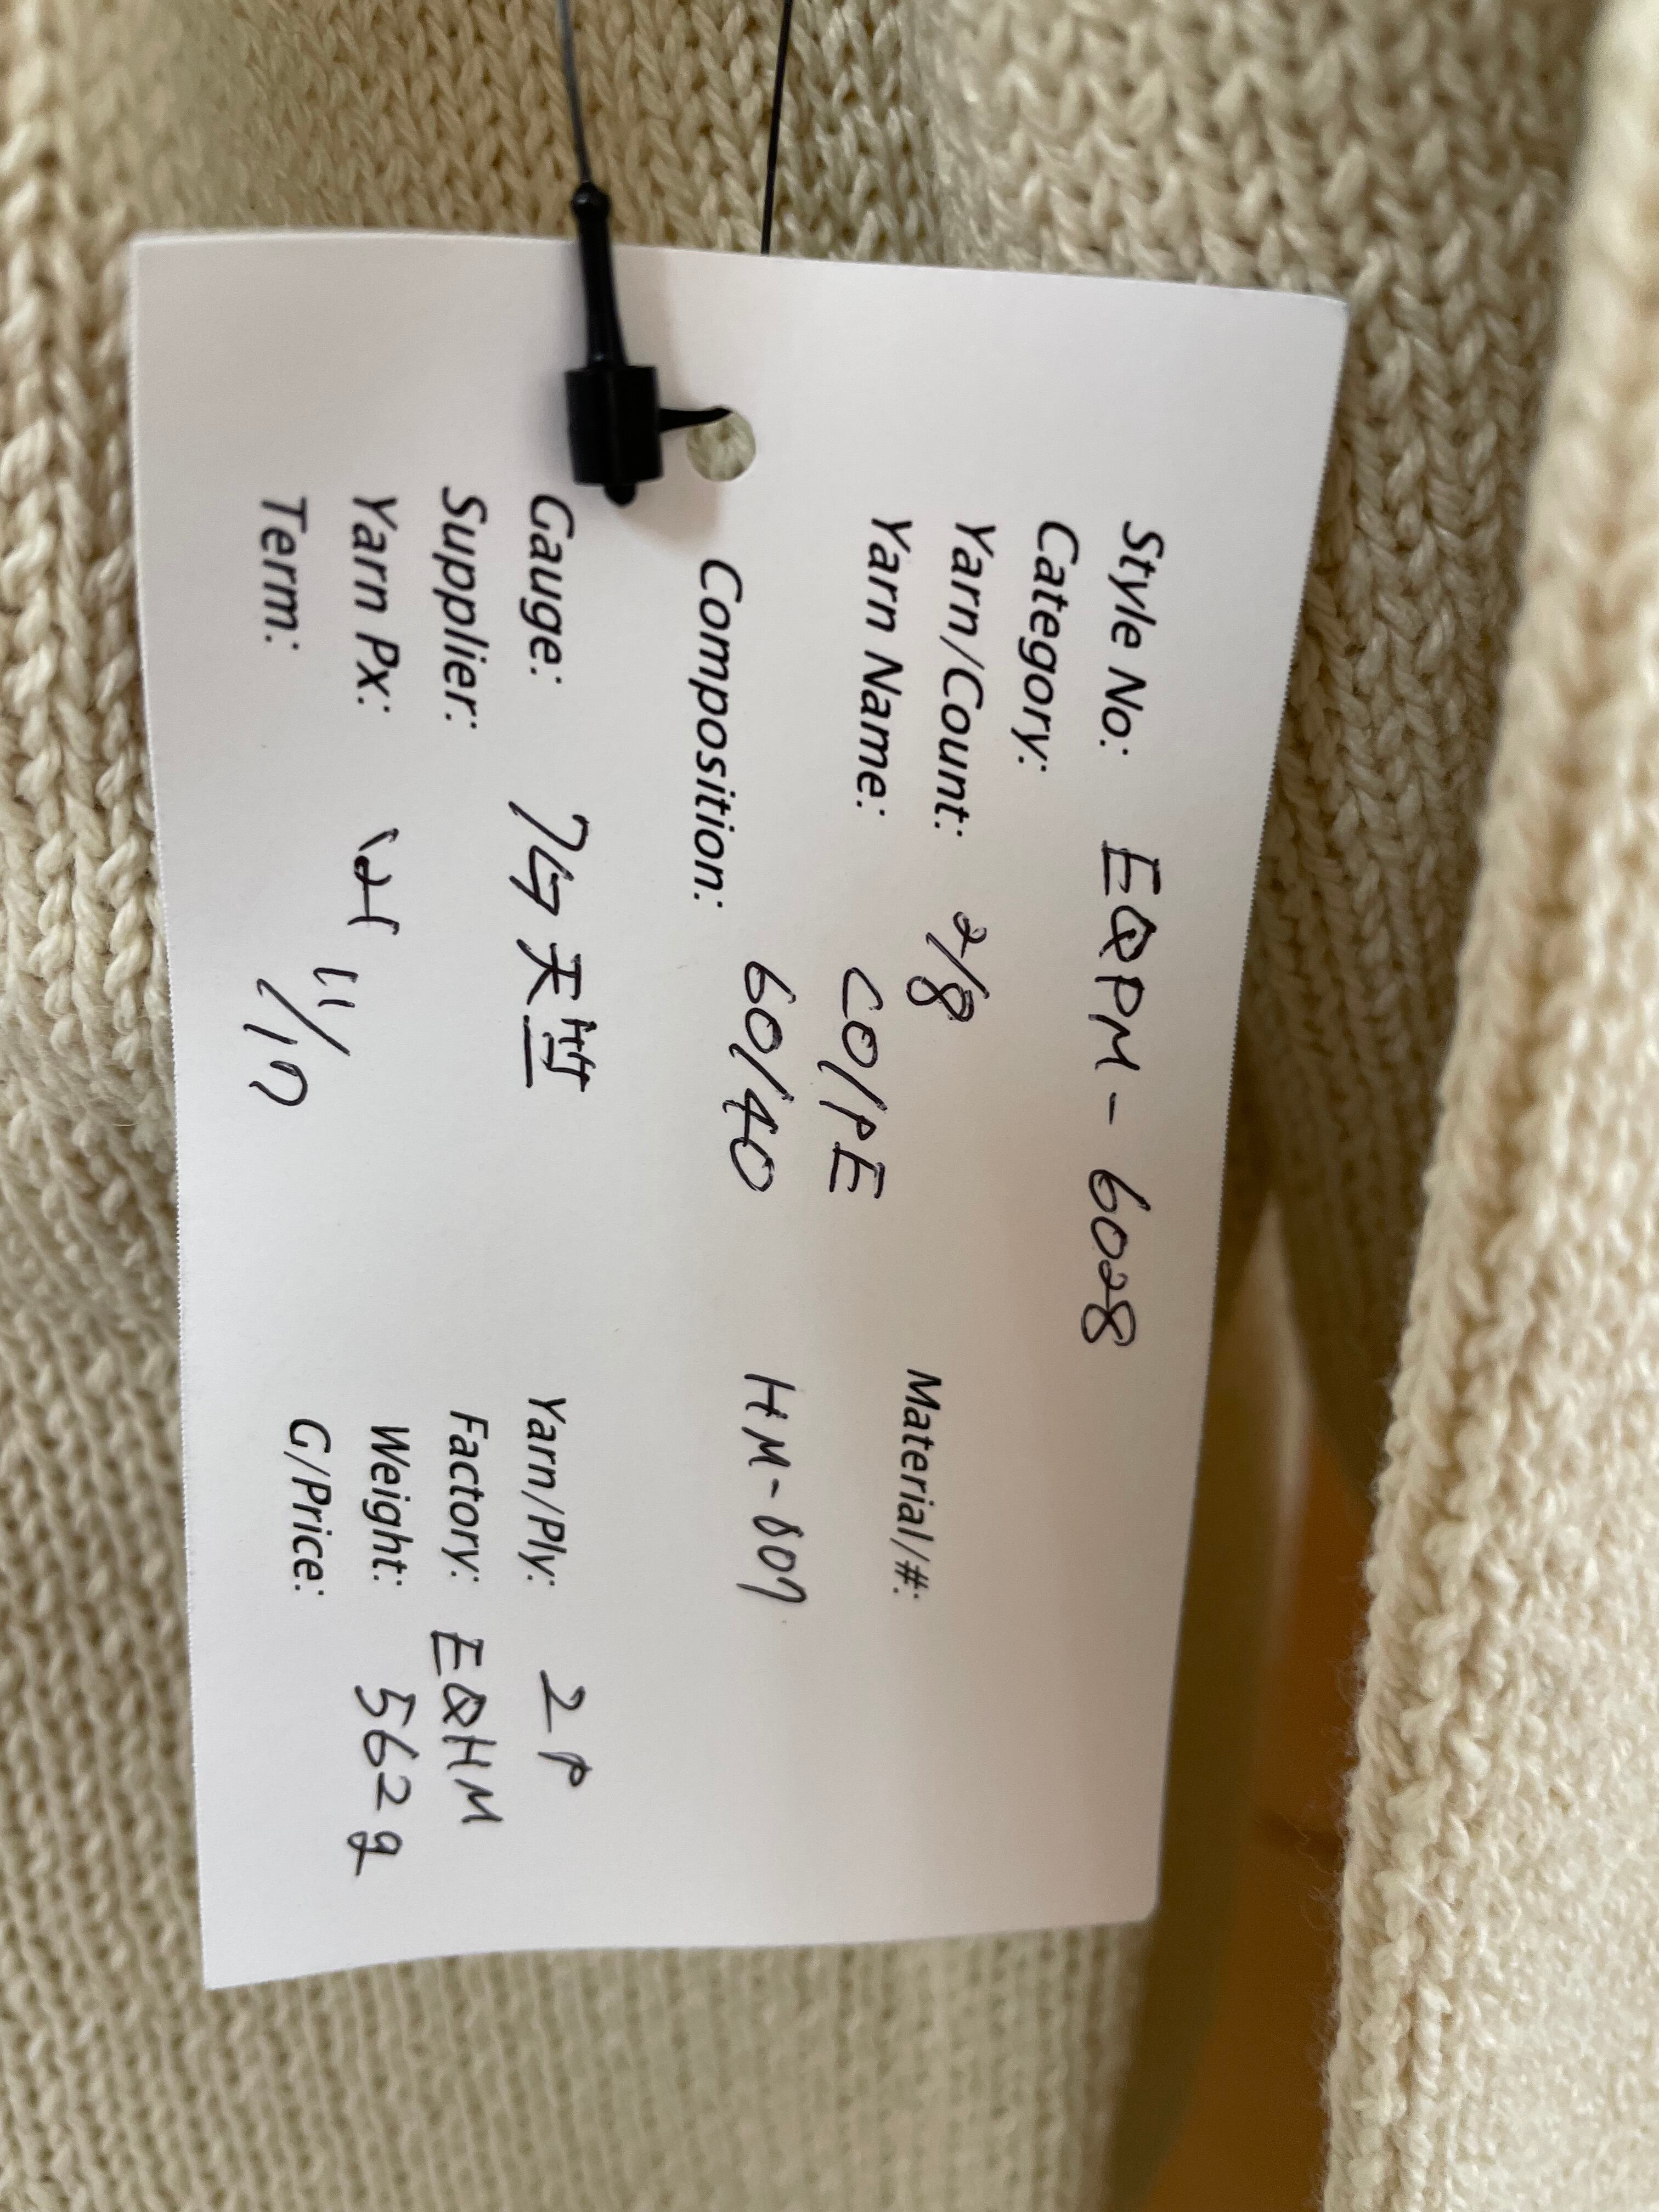 Style No: EQPM - 6028
Category:
Yarn/Count: 2/8 Material/#:
Yarn Name: CO/PE
Composition: 60/40 HM-007
Gauge: 7G 天竺 Yarn/Ply: 2P
Supplier: Factory: EQHM
Yarn Px: Weight: 562g
Term: 11/17 G/Price: